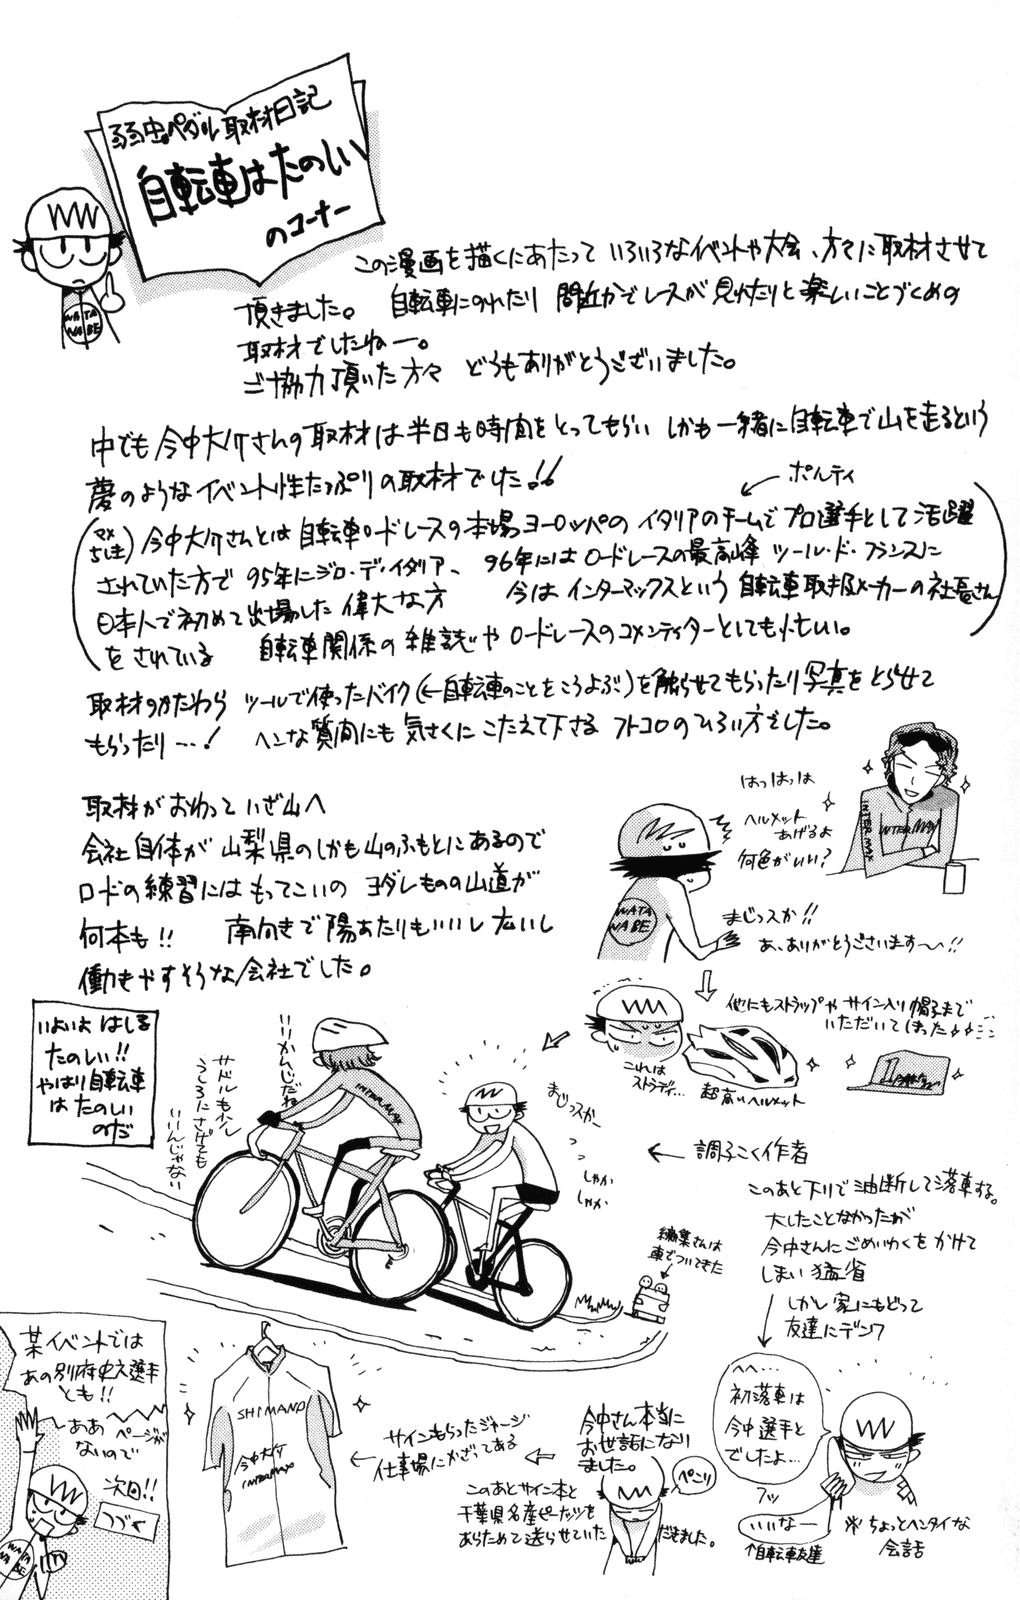 弱虫ペダル取材日記
自転車はたのしい
のコーナー
WATA
NABE
この漫画を描くにあたって いろいろなイベントや大会、方々に取材させて
頂きました。 自転車にのれたり 間近かでレースが見れたりと楽しいことづくめの
取材でしたねー。
ご協力頂いた方々 どうもありがとうございました。
中でも今中大介さんの取材は半日も時間をとってもらい しかも一緒に自転車で山を走るという
夢のようなイベント性たっぷりの取材でした!!
ポルティ
今中大介さんとは自転車ロードレースの本場ヨーロッパのイタリアのチームでプロ選手として活躍
されていた方で 95年にジロ・デ・イタリア、 96年にはロードレースの最高峰 ツール・ド・フランスに
日本人で初めて出場した偉大な方 今はインターマックスという自転車取扱メーカーの社長さん
をされている 自転車関係の雑誌やロードレースのコメンテイターとしても忙しい。
取材のかたわら ツールで使ったバイク(←自転車のことをこうよぶ)を触らせてもらったり写真をとらせて
もらったり…! ヘンな質問にも気さくにこたえて下さる フトコロのひろい方でした。
取材がおわって いざ山へ
会社自体が山梨県のしかも山のふもとにあるので
ロードの練習にはもってこいの ヨダレものの山道が
何本も!! 南向きで陽あたりもいいし広いし
働きやすそうな会社でした。
はっはっは
ヘルメット
あげるよ
何色がいい?
INTERMAX
INTERMAX
WATA
NABE
まじっスか!!
あ、ありがとうございます〜!!
他にもストラップや サイン入り帽子まで
いただいてしまった
これは
ストラディ…
超高いヘルメット
いよいよ はしる
たのしい!!
やはり自転車
は たのしい
のだ
いいかんじだね
サドルも少し
うしろにさげても
いいんじゃない
INTERMAX
まじっスかー
しゃか
しゃか
← 調子こく作者
編集さんは
車でついてきた
このあと下りで油断して落車する。
大したことなかったが
今中さんにごめいわくをかけて
しまい猛省
しかし家にもどって
友達にデンワ
へへ…
初落車は
今中選手と
でしたよ…
フッ
いいなー
↑自転車友達
※ちょっとヘンタイな
会話
今中さん本当に
お世話になり
ました。
ぺこり
このあとサイン本と
千葉県名産ピーナッツを
あらためて送らせていただきました。
サインもらったジャージ
仕事場にかざってある
SHIMANO
今中大介
INTERMAX
某イベントでは
あの別府史之選手
とも!!
しああ ページが
ないので
次回!!
つづく
WATA
NABE